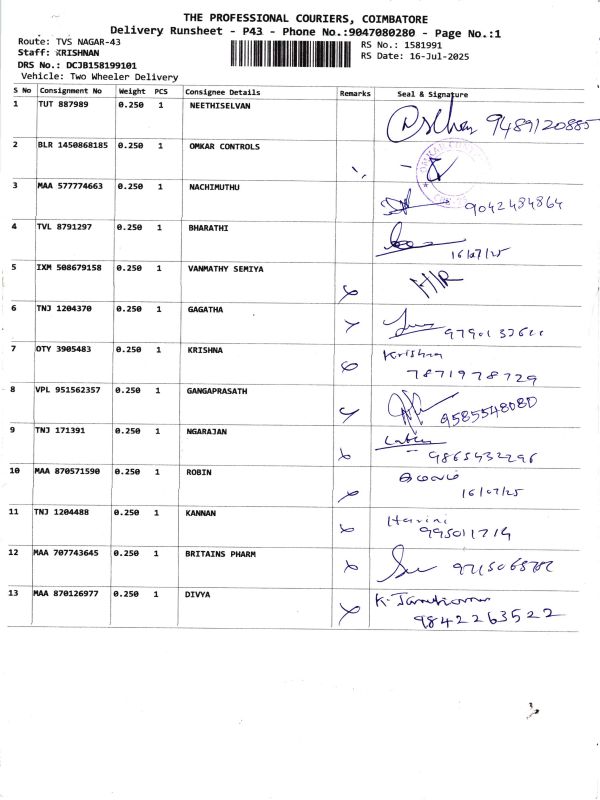 THE PROFESSIONAL COURIERS, COIMBATORE
Delivery Runsheet - P43 - Phone No.:9047080280 - Page No.:1
Route: TVS NAGAR-43
Staff: KRISHNAN
DRS No.: DCJB158199101
Vehicle: Two Wheeler Delivery
RS No.: 1581991
RS Date: 16-Jul-2025
S No Consignment No Weight PCS Consignee Details Remarks Seal & Signature
1 TUT 887989 0.250 1 NEETHISELVAN 9489120885
2 BLR 1450868185 0.250 1 OMKAR CONTROLS
3 MAA 577774663 0.250 1 NACHIMUTHU 9042484864
4 TVL 8791297 0.250 1 BHARATHI
16/07/25
5 IXM 508679158 0.250 1 VANMATHY SEMIYA H/R
6 TNJ 1204370 0.250 1 GAGATHA
7 OTY 3905483 0.250 1 KRISHNA Krishna
7871978729
8 VPL 951562357 0.250 1 GANGAPRASATH 9585548080
9 TNJ 171391 0.250 1 NGARAJAN
9865432296
10 MAA 870571590 0.250 1 ROBIN
16/07/25
11 TNJ 1204488 0.250 1 KANNAN Harini
12 MAA 707743645 0.250 1 BRITAINS PHARM
13 MAA 870126977 0.250 1 DIVYA
9842263522